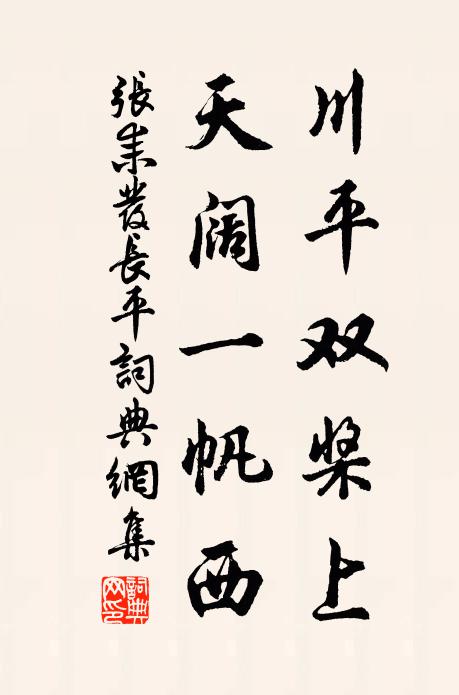 川平双桨上
天阔一帆西
張耒發長平詞典網集
詞典網印